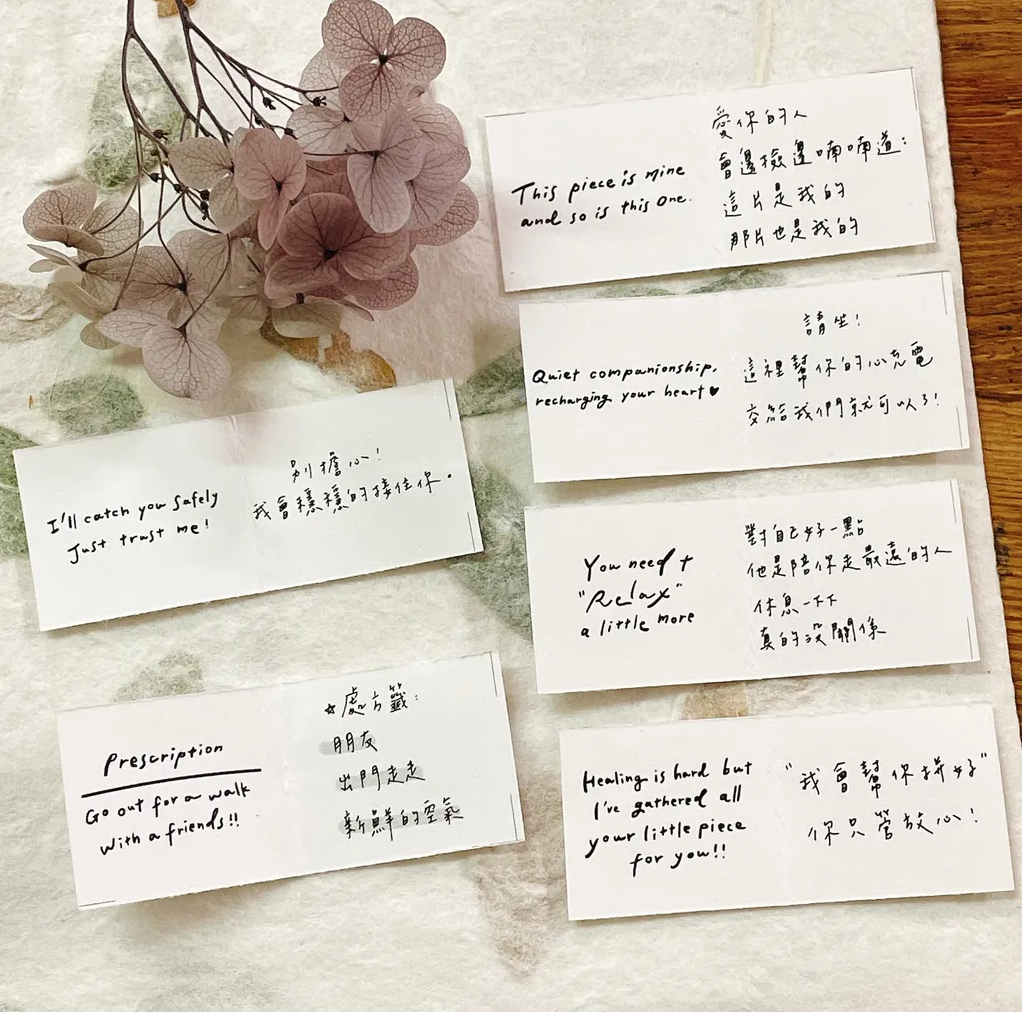 This piece is mine
and so is this one.
愛你的人
會邊撿邊喃喃道:
這片是我的
那片也是我的
Quiet companionship,
recharging your heart ♥
請坐!
這裡幫你的心充電
交給我們就可以了!
I'll catch you safely
Just trust me!
別擔心!
我會穩穩的接住你。
You need t
"Relax"
a little more
對自己好一點
他是陪你走最遠的人
休息一下下
真的沒關係
Prescription
Go out for a walk
with a friends!!
☆處方籤:
朋友
出門走走
新鮮的空氣
Healing is hard but
I've gathered all
your little piece
for you!!
"我會幫你拼好"
你只管放心!